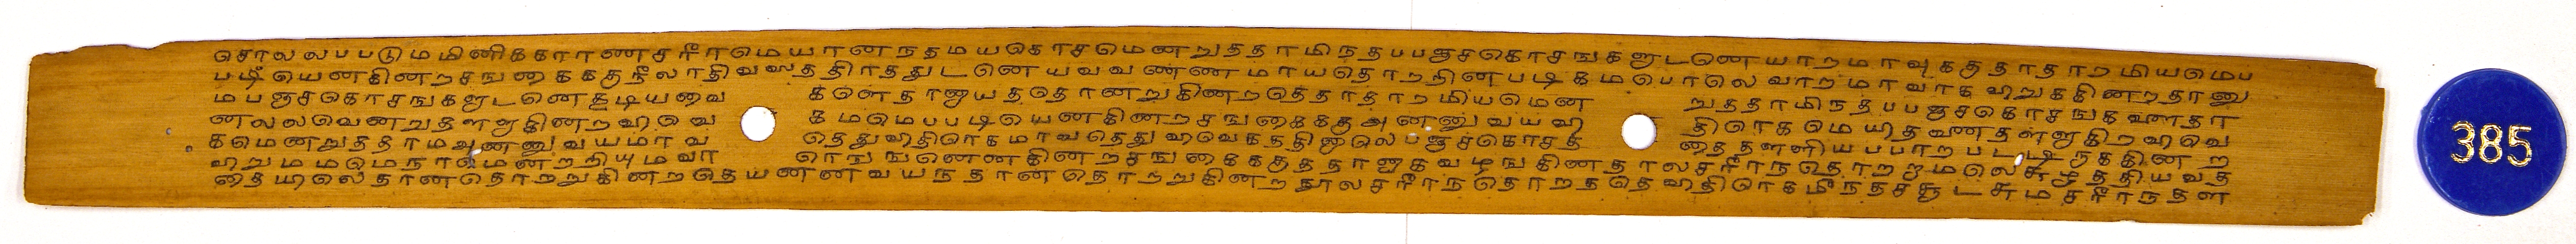 சொலலபபடுமமினிககாரணசரீரமெயானநதமயகொசமெனறுததாமிநதபபஞசகொசஙகளுடனெயாறமாவுககுதாதாறமியமெப
படியெனகினறசஙகைககுநீலாதிவஸததிரததுடனெயவவணணமாயதொறறினபடிகமபொலெவாறமாவாகஇறுககினறதானு
மபஞசகொசஙகளுடனெகூடியவை களதானுயததொனறுகினறதெதாதாறமியமென றுததாமிநதபபஞசகொசஙகளதா
னலலவெனறுதளளுகினறஇவெ கமமெபபடியெனகினறசஙகைககுஅனனுவயவி திரெகமெயிதவணதளளுகிறஇவெ
கமெனறுததாமஅணனுவயமாவ தெதுவிதிரெகமாவதெதுஇவெகததினாலெபஞசகொசத தைதளளியபபாறபடடிருககின
இறுமமமெநாலமெனறறியுமவா றெஙஙனெனகினறசஙகைககுததானுகவழஙகினதாலசரீரநதொறறுமலெசுழுததியவத
தையிலெதானதொறறுகினறதெயனனவயநதானதொறறுகினறதூலசரீரநதொறததெவிதிரெகமிநதசசூடசுமசரீரநதள
385